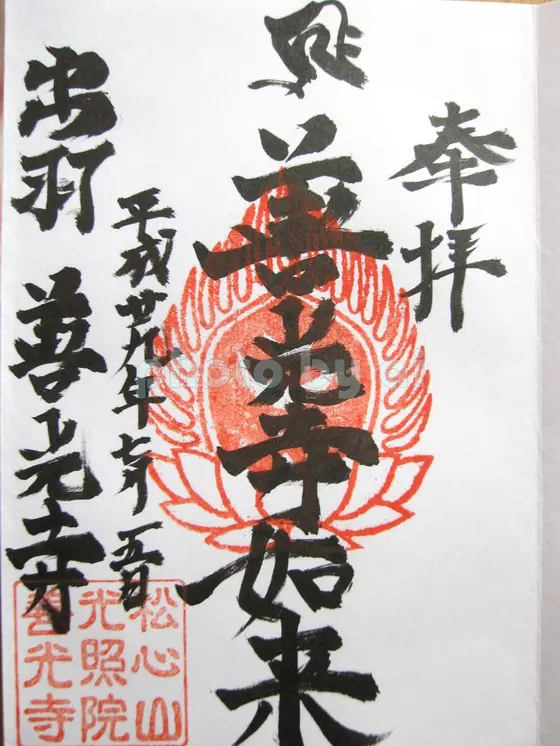 奉拝
善光寺如来
平成廿九年七月一五日
出羽 善光寺
松心山
光照院
善光寺
photo by